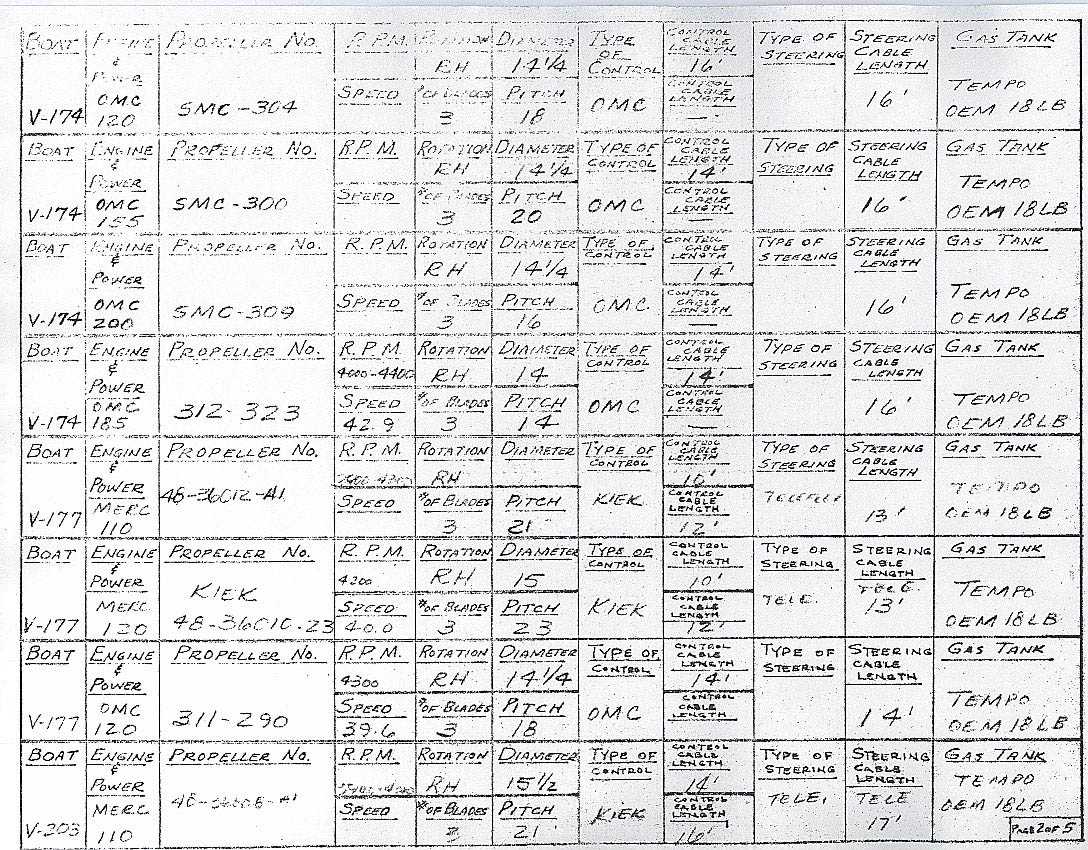 BOAT ENGINE PROPELLER NO. R.P.M. ROTATION DIAMETER TYPE OF CONTROL CONTROL CABLE LENGTH TYPE OF STEERING STEERING CABLE LENGTH GAS TANK
& POWER RH 14 1/4 16'
SPEED # OF BLADES PITCH CONTROL CABLE LENGTH TEMPO
V-174 OMC 120 SMC-304 3 18 OMC — 16' OEM 18LB
BOAT ENGINE & POWER PROPELLER NO. R.P.M. ROTATION DIAMETER TYPE OF CONTROL CONTROL CABLE LENGTH TYPE OF STEERING STEERING CABLE LENGTH GAS TANK
RH 14 1/4 14'
SPEED # OF BLADES PITCH CONTROL CABLE LENGTH TEMPO
V-174 OMC 155 SMC-300 3 20 OMC — 16' OEM 18LB
BOAT ENGINE & POWER PROPELLER NO. R.P.M. ROTATION DIAMETER TYPE OF CONTROL CONTROL CABLE LENGTH TYPE OF STEERING STEERING CABLE LENGTH GAS TANK
RH 14 1/4 14'
SPEED # OF BLADES PITCH CONTROL CABLE LENGTH TEMPO
V-174 OMC 200 SMC-309 3 16 OMC — 16' OEM 18LB
BOAT ENGINE & POWER PROPELLER NO. R.P.M. ROTATION DIAMETER TYPE OF CONTROL CONTROL CABLE LENGTH TYPE OF STEERING STEERING CABLE LENGTH GAS TANK
4000-4400 RH 14 14'
SPEED # OF BLADES PITCH CONTROL CABLE LENGTH TEMPO
V-174 OMC 185 312-323 42.9 3 14 OMC — 16' OEM 18LB
BOAT ENGINE & POWER PROPELLER NO. R.P.M. ROTATION DIAMETER TYPE OF CONTROL CONTROL CABLE LENGTH TYPE OF STEERING STEERING CABLE LENGTH GAS TANK
RH
SPEED # OF BLADES PITCH CONTROL CABLE LENGTH TEMPO
V-177 MERC 110 48-36012-A1 3 21 KIEK 12' 13' OEM 18LB
BOAT ENGINE & POWER PROPELLER NO. R.P.M. ROTATION DIAMETER TYPE OF CONTROL CONTROL CABLE LENGTH TYPE OF STEERING STEERING CABLE LENGTH GAS TANK
KIEK 4200 RH 15 10' TELE. TELE.
SPEED # OF BLADES PITCH CONTROL CABLE LENGTH TEMPO
V-177 MERC 120 48-36010-23 40.0 3 23 KIEK 12' 13' OEM 18LB
BOAT ENGINE & POWER PROPELLER NO. R.P.M. ROTATION DIAMETER TYPE OF CONTROL CONTROL CABLE LENGTH TYPE OF STEERING STEERING CABLE LENGTH GAS TANK
4300 RH 14 1/4 14'
SPEED # OF BLADES PITCH CONTROL CABLE LENGTH TEMPO
V-177 OMC 120 311-290 39.6 3 18 OMC 14' OEM 18LB
BOAT ENGINE & POWER PROPELLER NO. R.P.M. ROTATION DIAMETER TYPE OF CONTROL CONTROL CABLE LENGTH TYPE OF STEERING STEERING CABLE LENGTH GAS TANK
RH 15 1/2 14' TELE. TELE TEMPO
SPEED # OF BLADES PITCH CONTROL CABLE LENGTH
V-203 MERC 110 3 21 KIEK 16' 17' OEM 18LB
PAGE 2 OF 5